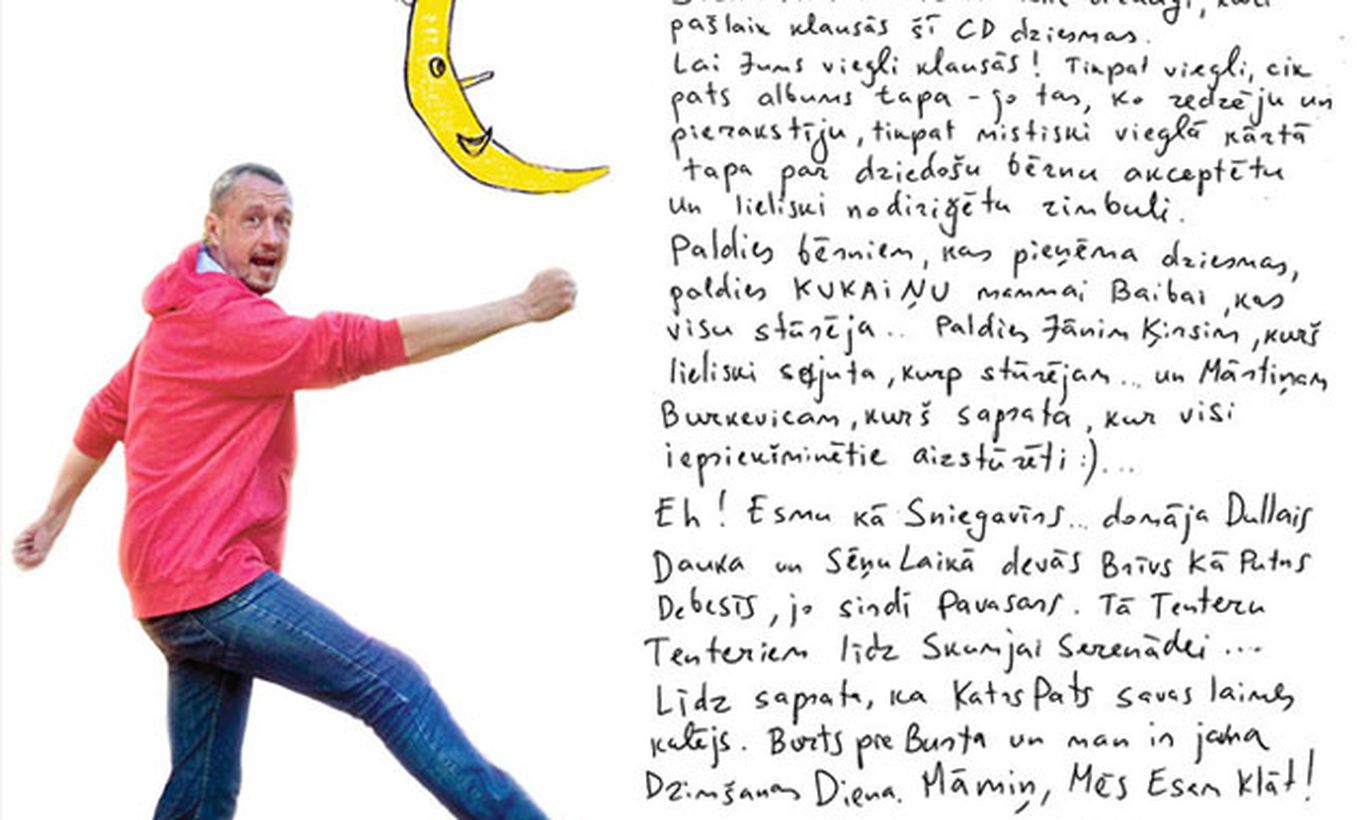 pašlaik klausās šī CD dziesmas.
Lai Jums viegli klausās! Tikpat viegli, cik
pats albums tapa - jo tas, ko redzēju un
pierakstīju, tikpat mistiski vieglā kārtā
tapa par dziedošu bērnu akceptētu
un lieliski nodiriģētu rimbuli.
Paldies bērniem, kas pieņēma dziesmas,
paldies KUKAIŅU mammai Baibai, kas
visu stūrēja.. Paldies Jānim Ķirsim, kurš
lieliski sajuta, kurp stūrējam... un Mārtiņam
Burkevicam, kurš saprata, kur visi
iepriekšminētie aizstūrēti :)...
Eh! Esmu kā Sniegavīrs... domāja Dullais
Dauka un Sēņu Laikā devās Brīvs Kā Putns
Debesīs, jo sirdī Pavasars. Tā Tenteru
Tenteriem līdz Skumjai Serenādei ....
Līdz saprata, ka Katrs Pats savas laimes
kalējs. Burts pie Burta un man ir jauna
Dzimšanas Diena. Māmiņ, Mēs Esam Klāt!